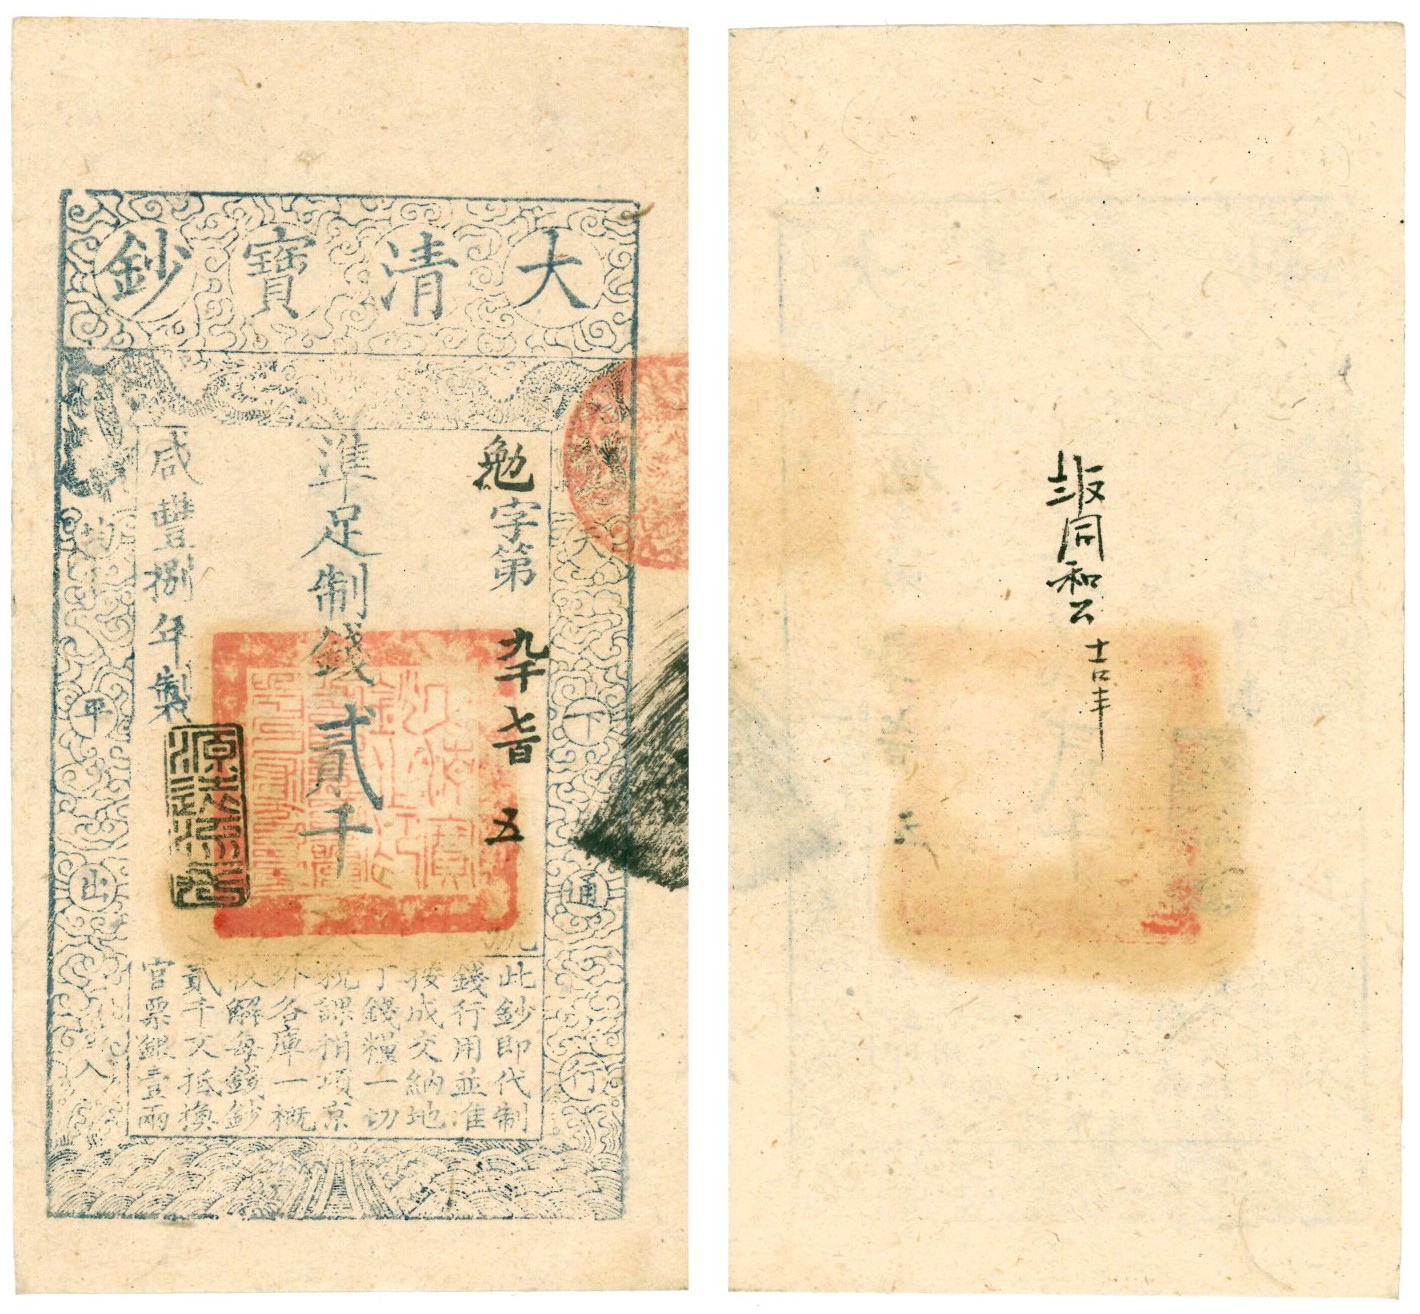 大清寶鈔
勉字第 九千七百五 號
準足制錢貳千文
咸豐捌年製
天下通行
均平出入
此鈔即代制
錢行用並准
按成交納地
丁錢糧一切
稅課捐項京
外各庫一概
收解每錢鈔
貳千文抵換
官票銀壹兩
源遠流長
同和公